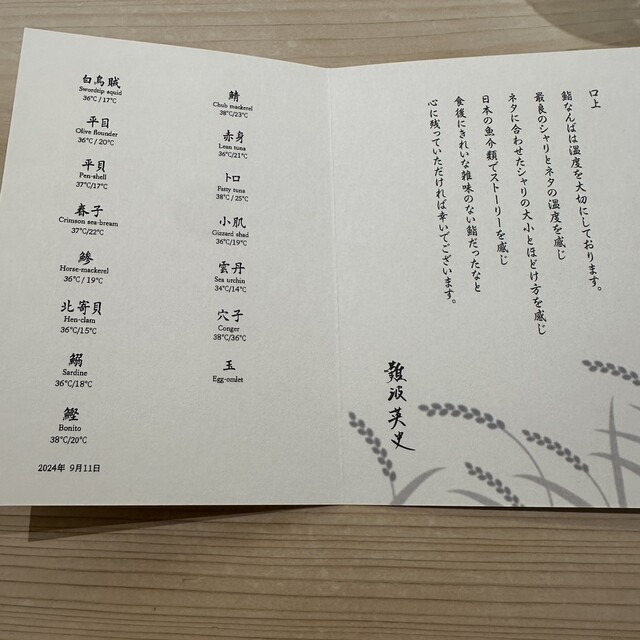 白烏賊
Swordtip squid
36℃/17℃
平目
Olive flounder
36℃/20℃
平貝
Pen-shell
37℃/17℃
春子
Crimson sea-bream
37℃/22℃
鯵
Horse-mackerel
36℃/19℃
北寄貝
Hen-clam
36℃/15℃
鰯
Sardine
36℃/18℃
鰹
Bonito
38℃/20℃
2024年 9月11日
鯖
Chub mackerel
38℃/23℃
赤身
Lean tuna
36℃/21℃
トロ
Fatty tuna
38℃/25℃
小肌
Gizzard shad
36℃/19℃
雲丹
Sea urchin
34℃/14℃
穴子
Conger
38℃/36℃
玉
Egg-omlet
口上
鮨なんばは温度を大切にしております。
最良のシャリとネタの温度を感じ
ネタに合わせたシャリの大小とほどけ方を感じ
日本の魚介類でストーリーを感じ
食後にきれいな雑味のない鮨だったなと
心に残っていただければ幸いでございます。
難波英史